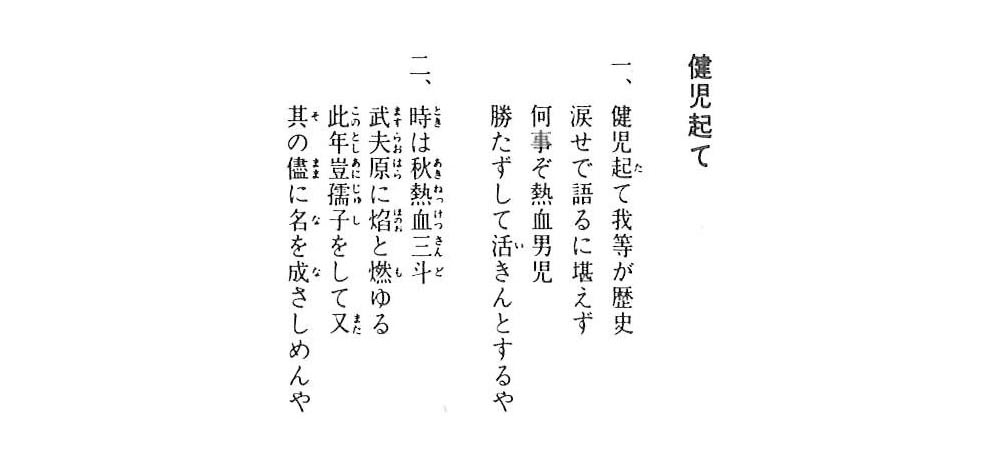 健児起て
一、健児起て我等が歴史
涙せで語るに堪えず
何事ぞ熱血男児
勝たずして活きんとするや
二、時は秋熱血三斗
武夫原に焰と燃ゆる
此年豈孺子をして又
其の儘に名を成さしめんや